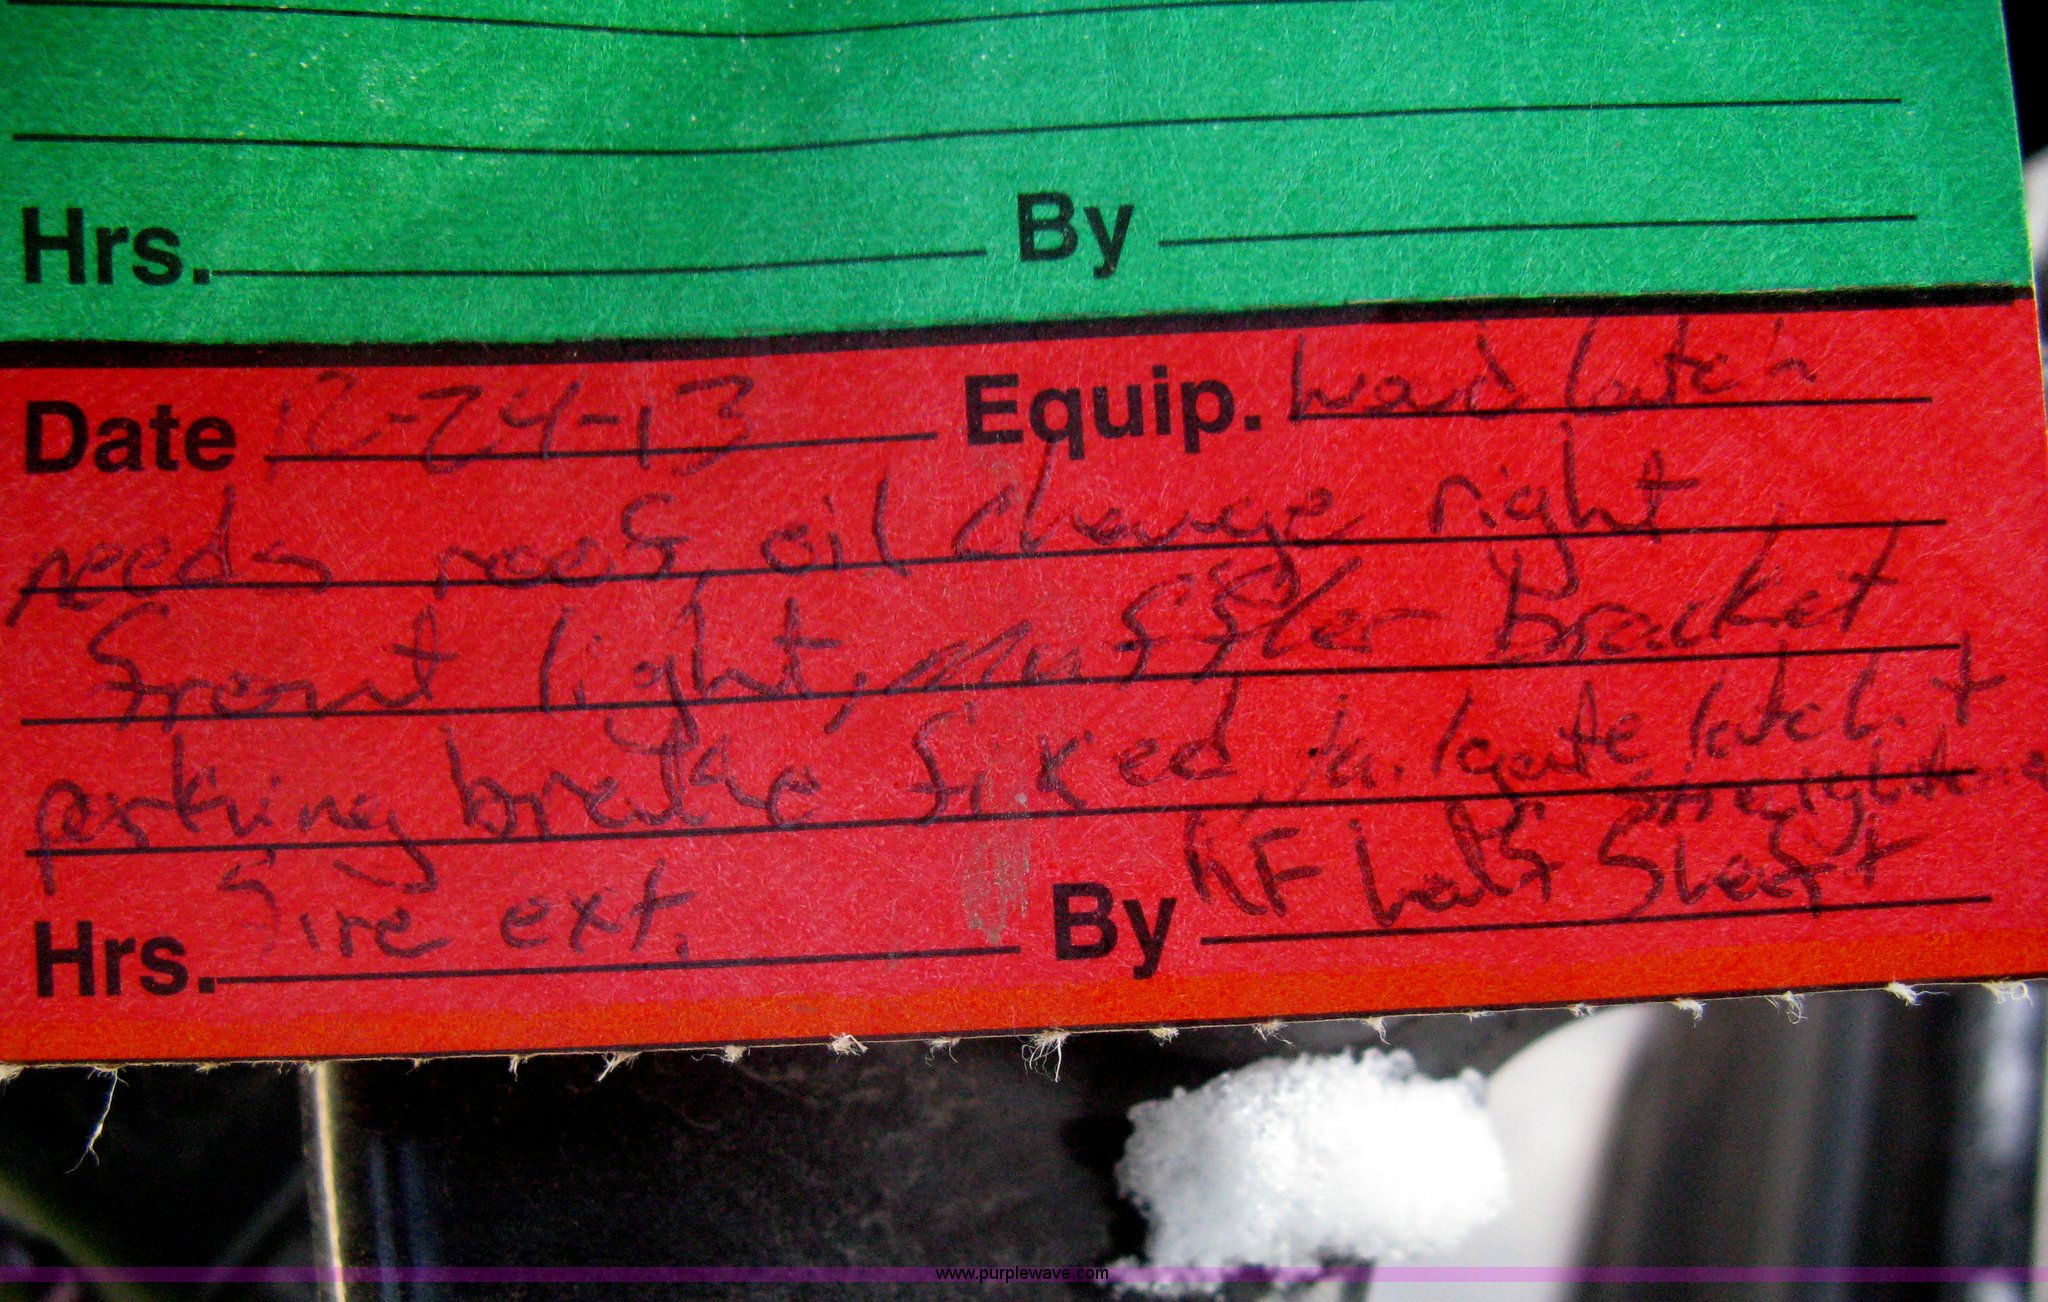 Hrs. By
Date 12-24-13 Equip. hood latch
needs roof, oil change right
front light, muffler bracket
parking brake fixed, tailgate latch +
straighten
Hrs. fire ext. By RF half shaft
www.purplewave.com